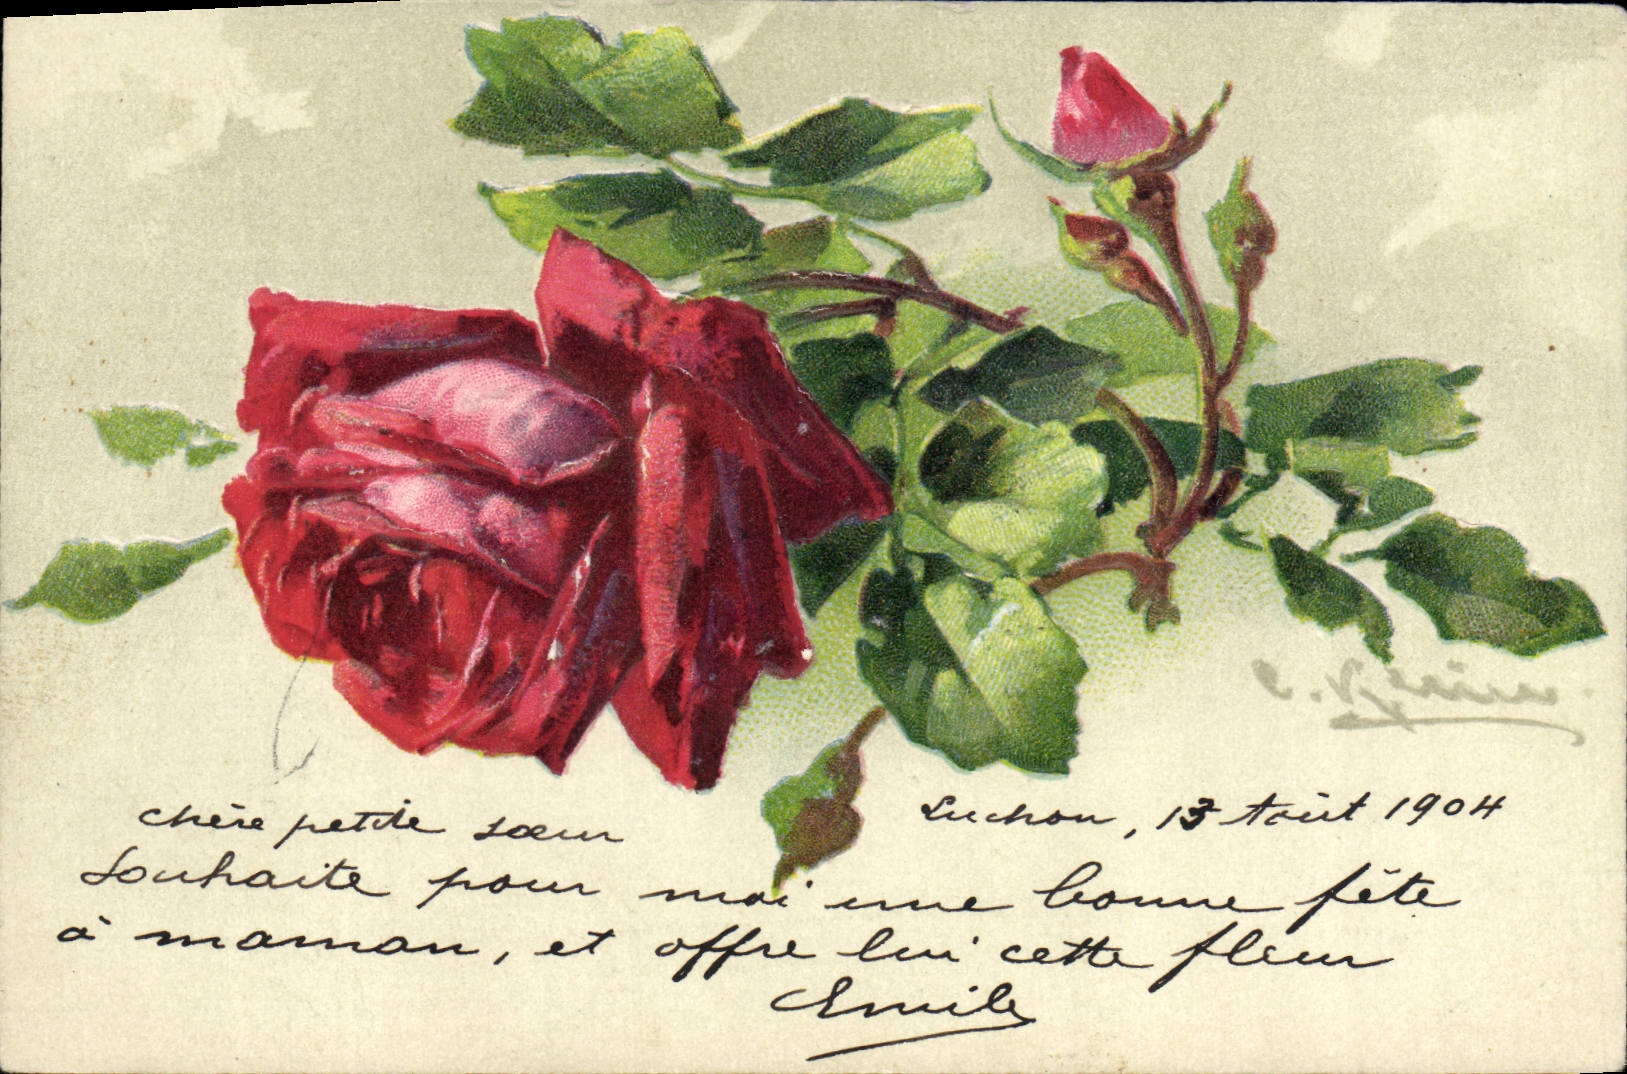 C. Klein
Luchon, 13 Août 1904
chère petite sœur
Souhaite pour moi une bonne fête
à maman, et offre lui cette fleur
Emile